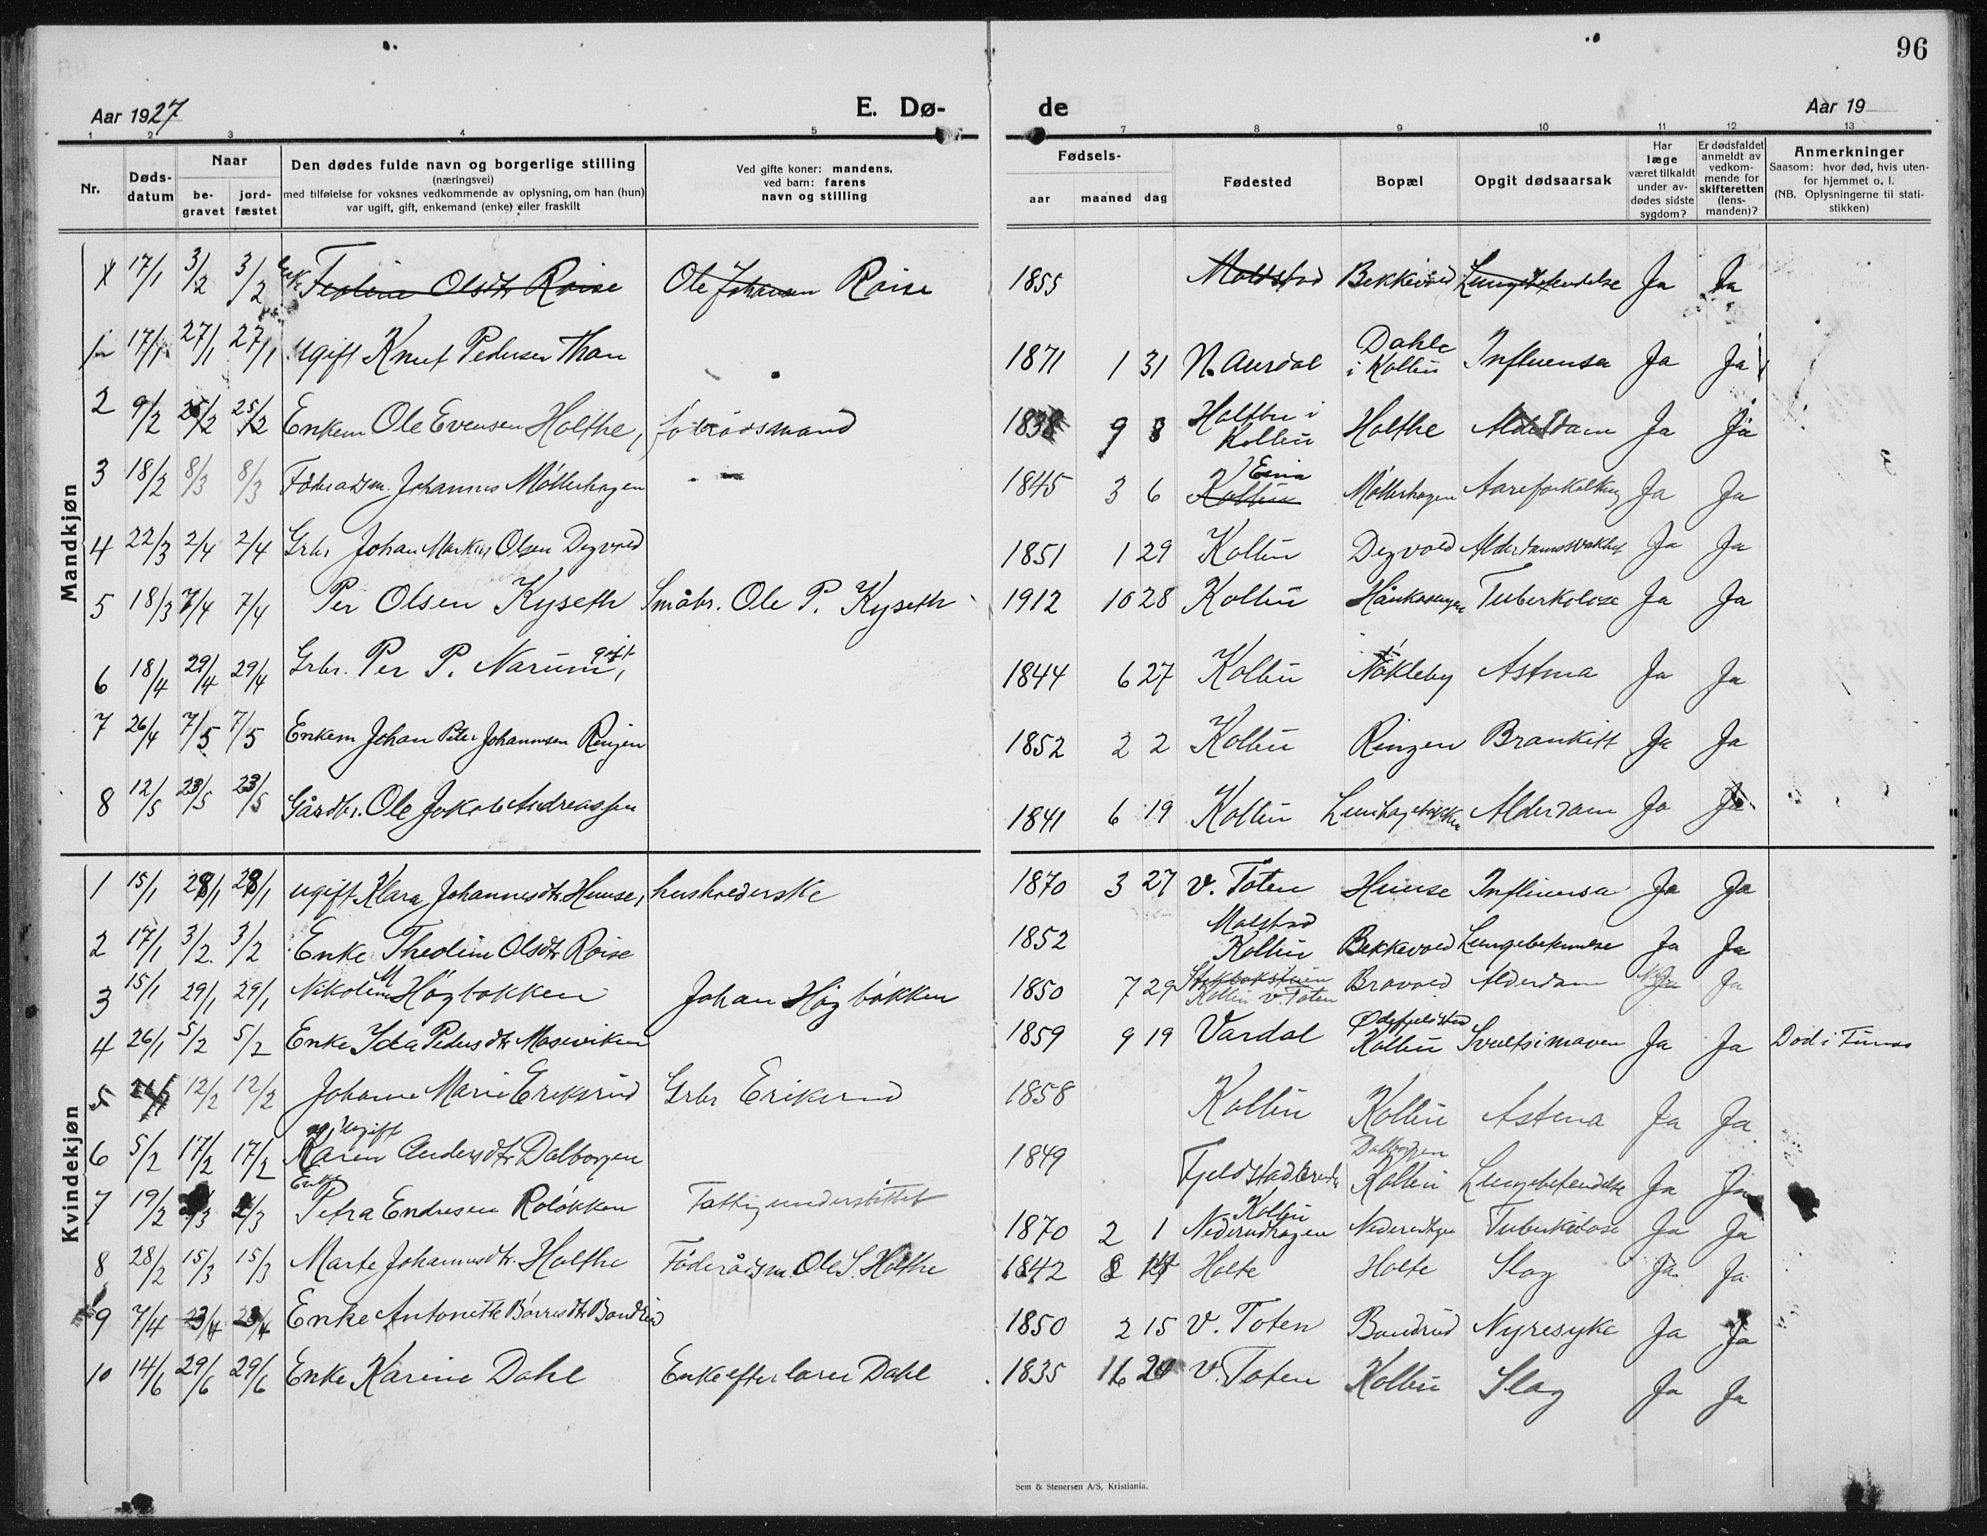 96
Aar 1927 E. Dø- de Aar 19
1 2 3 4 5 7 8 9 10 11 12 13
Nr. Døds-datum Naar be-gravet jord-fæstet Den dødes fulde navn og borgerlige stilling (næringsvei) med tilføielse for voksnes vedkommende av oplysning, om han (hun) var ugift, gift, enkemand (enke) eller fraskilt Ved gifte koner: mandens, ved barn: farens navn og stilling Fødsels- aar maaned dag Fødested Bopæl Opgit dødsaarsak Har læge været tilkaldt under av-dødes sidste sygdom? Er dødsfaldet anmeldt av vedkom-mende for skifteretten (lens-manden)? Anmerkninger Saasom: hvor død, hvis uten-for hjemmet o. l. (NB. Oplysningerne til stati-stikken)
Mandkjøn
17/1 3/2 3/2 Enke Teoline Olsdtr Røise Ole Johansen Røise 1855 Molstad Bekkevold Lungebetendelse Ja Ja
1 17/1 27/1 27/1 ugift Knut Pedersen Thon 1871 1 31 N. Aurdal Dahle i Kolbu Influensa Ja Ja
2 9/2 25/2 25/2 Enkem Ole Evensen Holthe, föderådsmand 1838 9 8 Holthe i Kolbu Holthe Alderdom Ja Ja
3 18/2 8/3 8/3 Föderaadsm. Johannes Möllerhagen 1845 3 6 Kolbu Eina Möllerhagen Aareforkalkning Ja Ja
4 22/3 2/4 2/4 Grbr Johan Markus Olsen Degvold 1851 1 29 Kolbu Degvold Alderdomssvakhet Ja Ja
5 18/3 7/4 7/4 Per Olsen Kyseth Småbr. Ole P. Kyseth 1912 10 28 Kolbu Tuberkulose Ja Ja
6 18/4 29/4 29/4 Grbr. Per P. Narum, gift 1844 6 27 Kolbu Nökleby Astma Ja Ja
7 26/4 7/5 7/5 Enkem Johan Peter Johannesen Ringen 1852 2 2 Kolbu Ringen Bronkitt Ja Ja
8 12/5 23/5 23/5 Gårdbr. Ole Jakob Andreassen 1841 6 19 Kolbu Alderdom Ja Ja
Kvindekjøn
1 15/1 28/1 28/1 ugift Klara Johannesdtr. Hunse, husholderske 1870 3 27 V. Toten Hunse Influensa Ja Ja
2 17/1 3/2 3/2 Enke Theoline Olsdtr Røise 1852 Molstad Kolbu Bekkevold Lungebetennelse Ja Ja
3 15/1 29/1 29/1 Nikoline M Högbakken Johan Högbakken 1850 7 29 Kolbu V Toten Bravold Alderdom Nei Ja
4 26/1 5/2 5/2 Enke Ida Pedersdtr Moseviken 1859 9 19 Vardal Ødefjeldstad Kolbu Svulst i maven Ja Ja Död i Furnes
5 12/2 12/2 Johanne Marie Eriksrud Grbr Eriksrud 1858 Kolbu Kolbu Astma Ja Ja
6 5/2 17/2 17/2 ugift Karen Andersdtr Dalborgen 1849 Dalborgen Kolbu Lungebetendelse Ja Ja
7 19/2 2/3 Enke Petra Endresen Rolökken Fattigunderstöttet 1870 2 1 Kolbu Nederudhagen Nederudhgen Tuberkulose Ja Ja
8 28/2 15/3 15/3 Marte Johannesdtr. Holthe Föderådsm. Ole S. Holthe 1842 Holte Holte Slag Ja Ja
9 7/4 23/4 23/4 Enke Antonette Börresdtr Bondrud 1850 2 15 V. Toten Bondrud Nyresyke Ja Ja
10 14/6 29/6 29/6 Enke Karine Dahl Enke efter lærer Dahl 1835 V. Toten Kolbu Slag Ja Ja
Sem & Stenersen A/S, Kristiania.